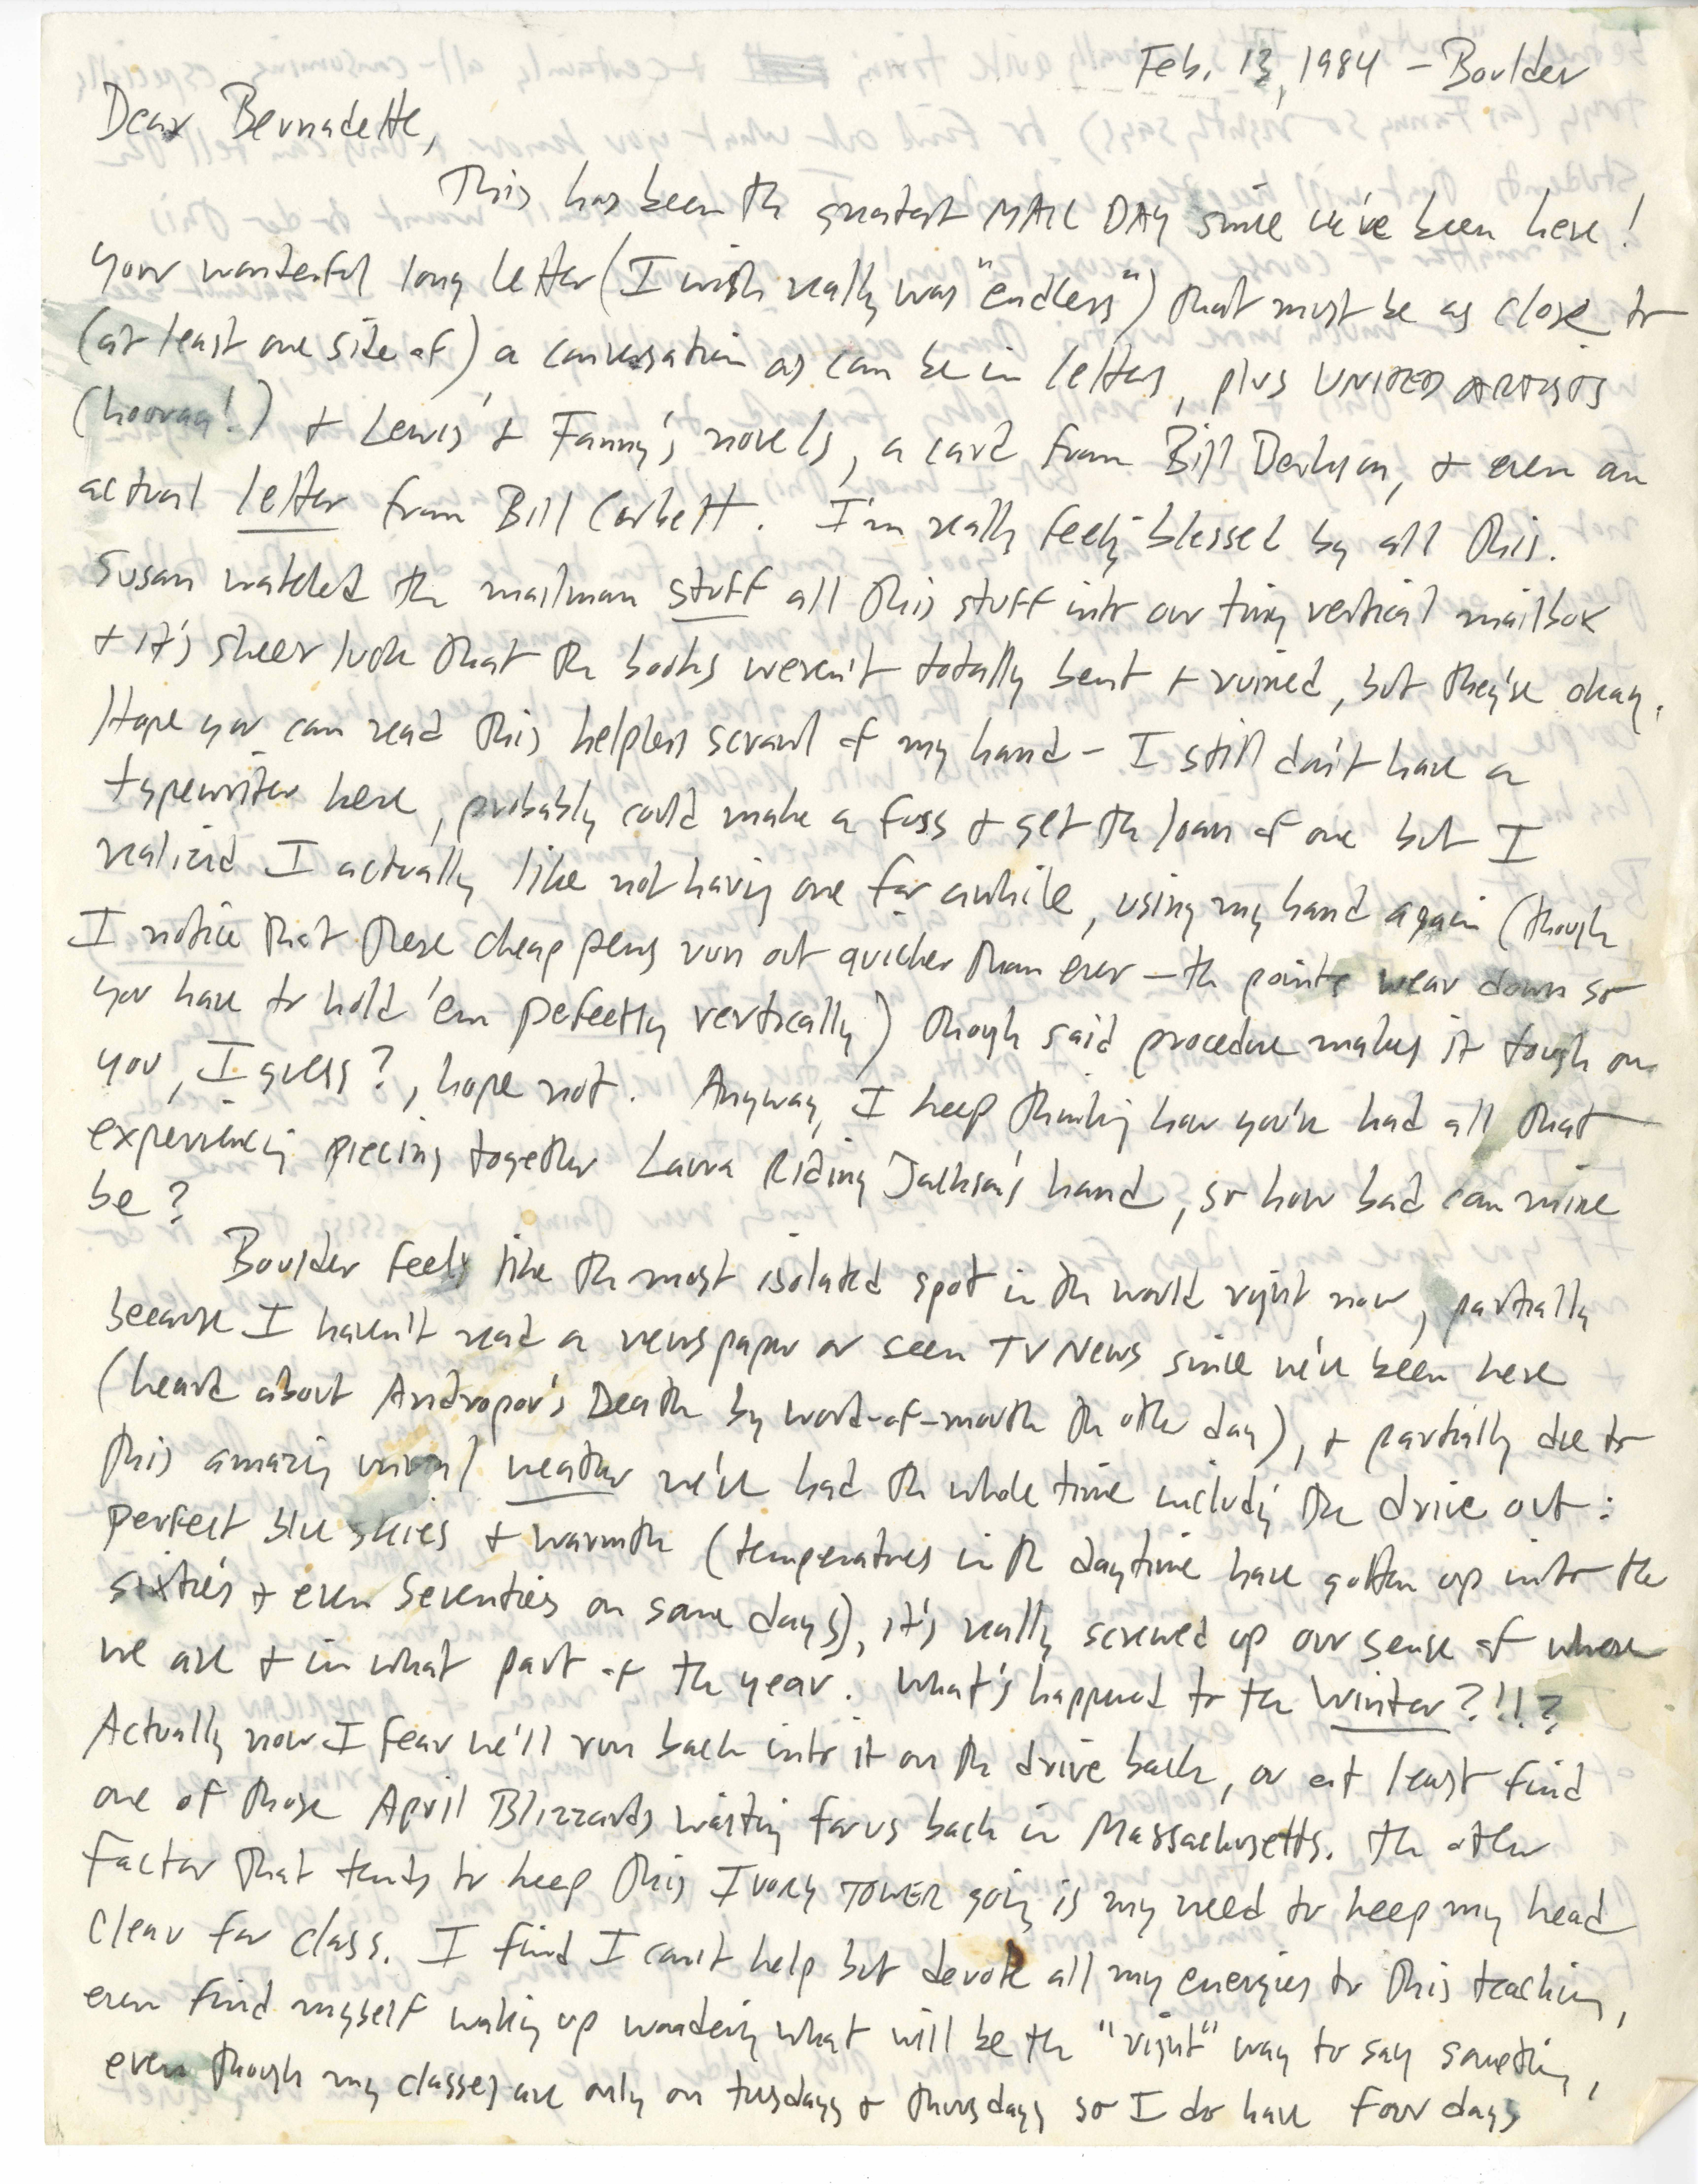 Feb. 13, 1984 – Boulder
Dear Bernadette,
This has been the greatest MAIL DAY since we've been here!
your wonderful long letter (I wish really was "endless") that must be as close to
(at least one side of) a conversation as can be in letters, plus UNITED ARTISTS
(hooray!) + Lewis' + Fanny's novels, a card from Bill Berkson, + even an
actual letter from Bill Corbett. I'm really feeling blessed by all this.
Susan watched the mailman stuff all this stuff into our tiny vertical mailbox
+ it's sheer luck that the books weren't totally bent + ruined, but they're okay.
Hope you can read this helpless scrawl of my hand – I still don't have a
typewriter here, probably could make a fuss + get the loan of one but I
realized I actually like not having one for awhile, using my hand again (though
I notice that these cheap pens run out quicker than ever – the points wear down so
you have to hold 'em perfectly vertically) though said procedure makes it tough on
you, I guess?, hope not. Anyway, I keep thinking how you've had all that
experiencing piecing together Laura Riding Jackson's hand, so how bad can mine
be?
Boulder feels like the most isolated spot in the world right now, partially
because I haven't read a newspaper or seen TV News since we've been here
(heard about Andropov's Death by word-of-mouth the other day), + partially due to
this amazing unreal weather we've had the whole time including the drive out:
perfect blue skies + warmth (temperatures in the daytime have gotten up into the
sixties + even seventies on some days), it's really screwed up our sense of where
we are + in what part of the year. What's happened to the Winter?!!?
Actually now I fear we'll run back into it on the drive back, or at least find
one of those April Blizzards waiting for us back in Massachusetts. The other
Factor that tends to keep this IVORY TOWER going is my need to keep my head
clear for class. I find I can't help but devote all my energies to this teaching,
even find myself waking up wondering what will be the "right" way to say something,
even though my classes are only on tuesdays + thursdays so I do have four days